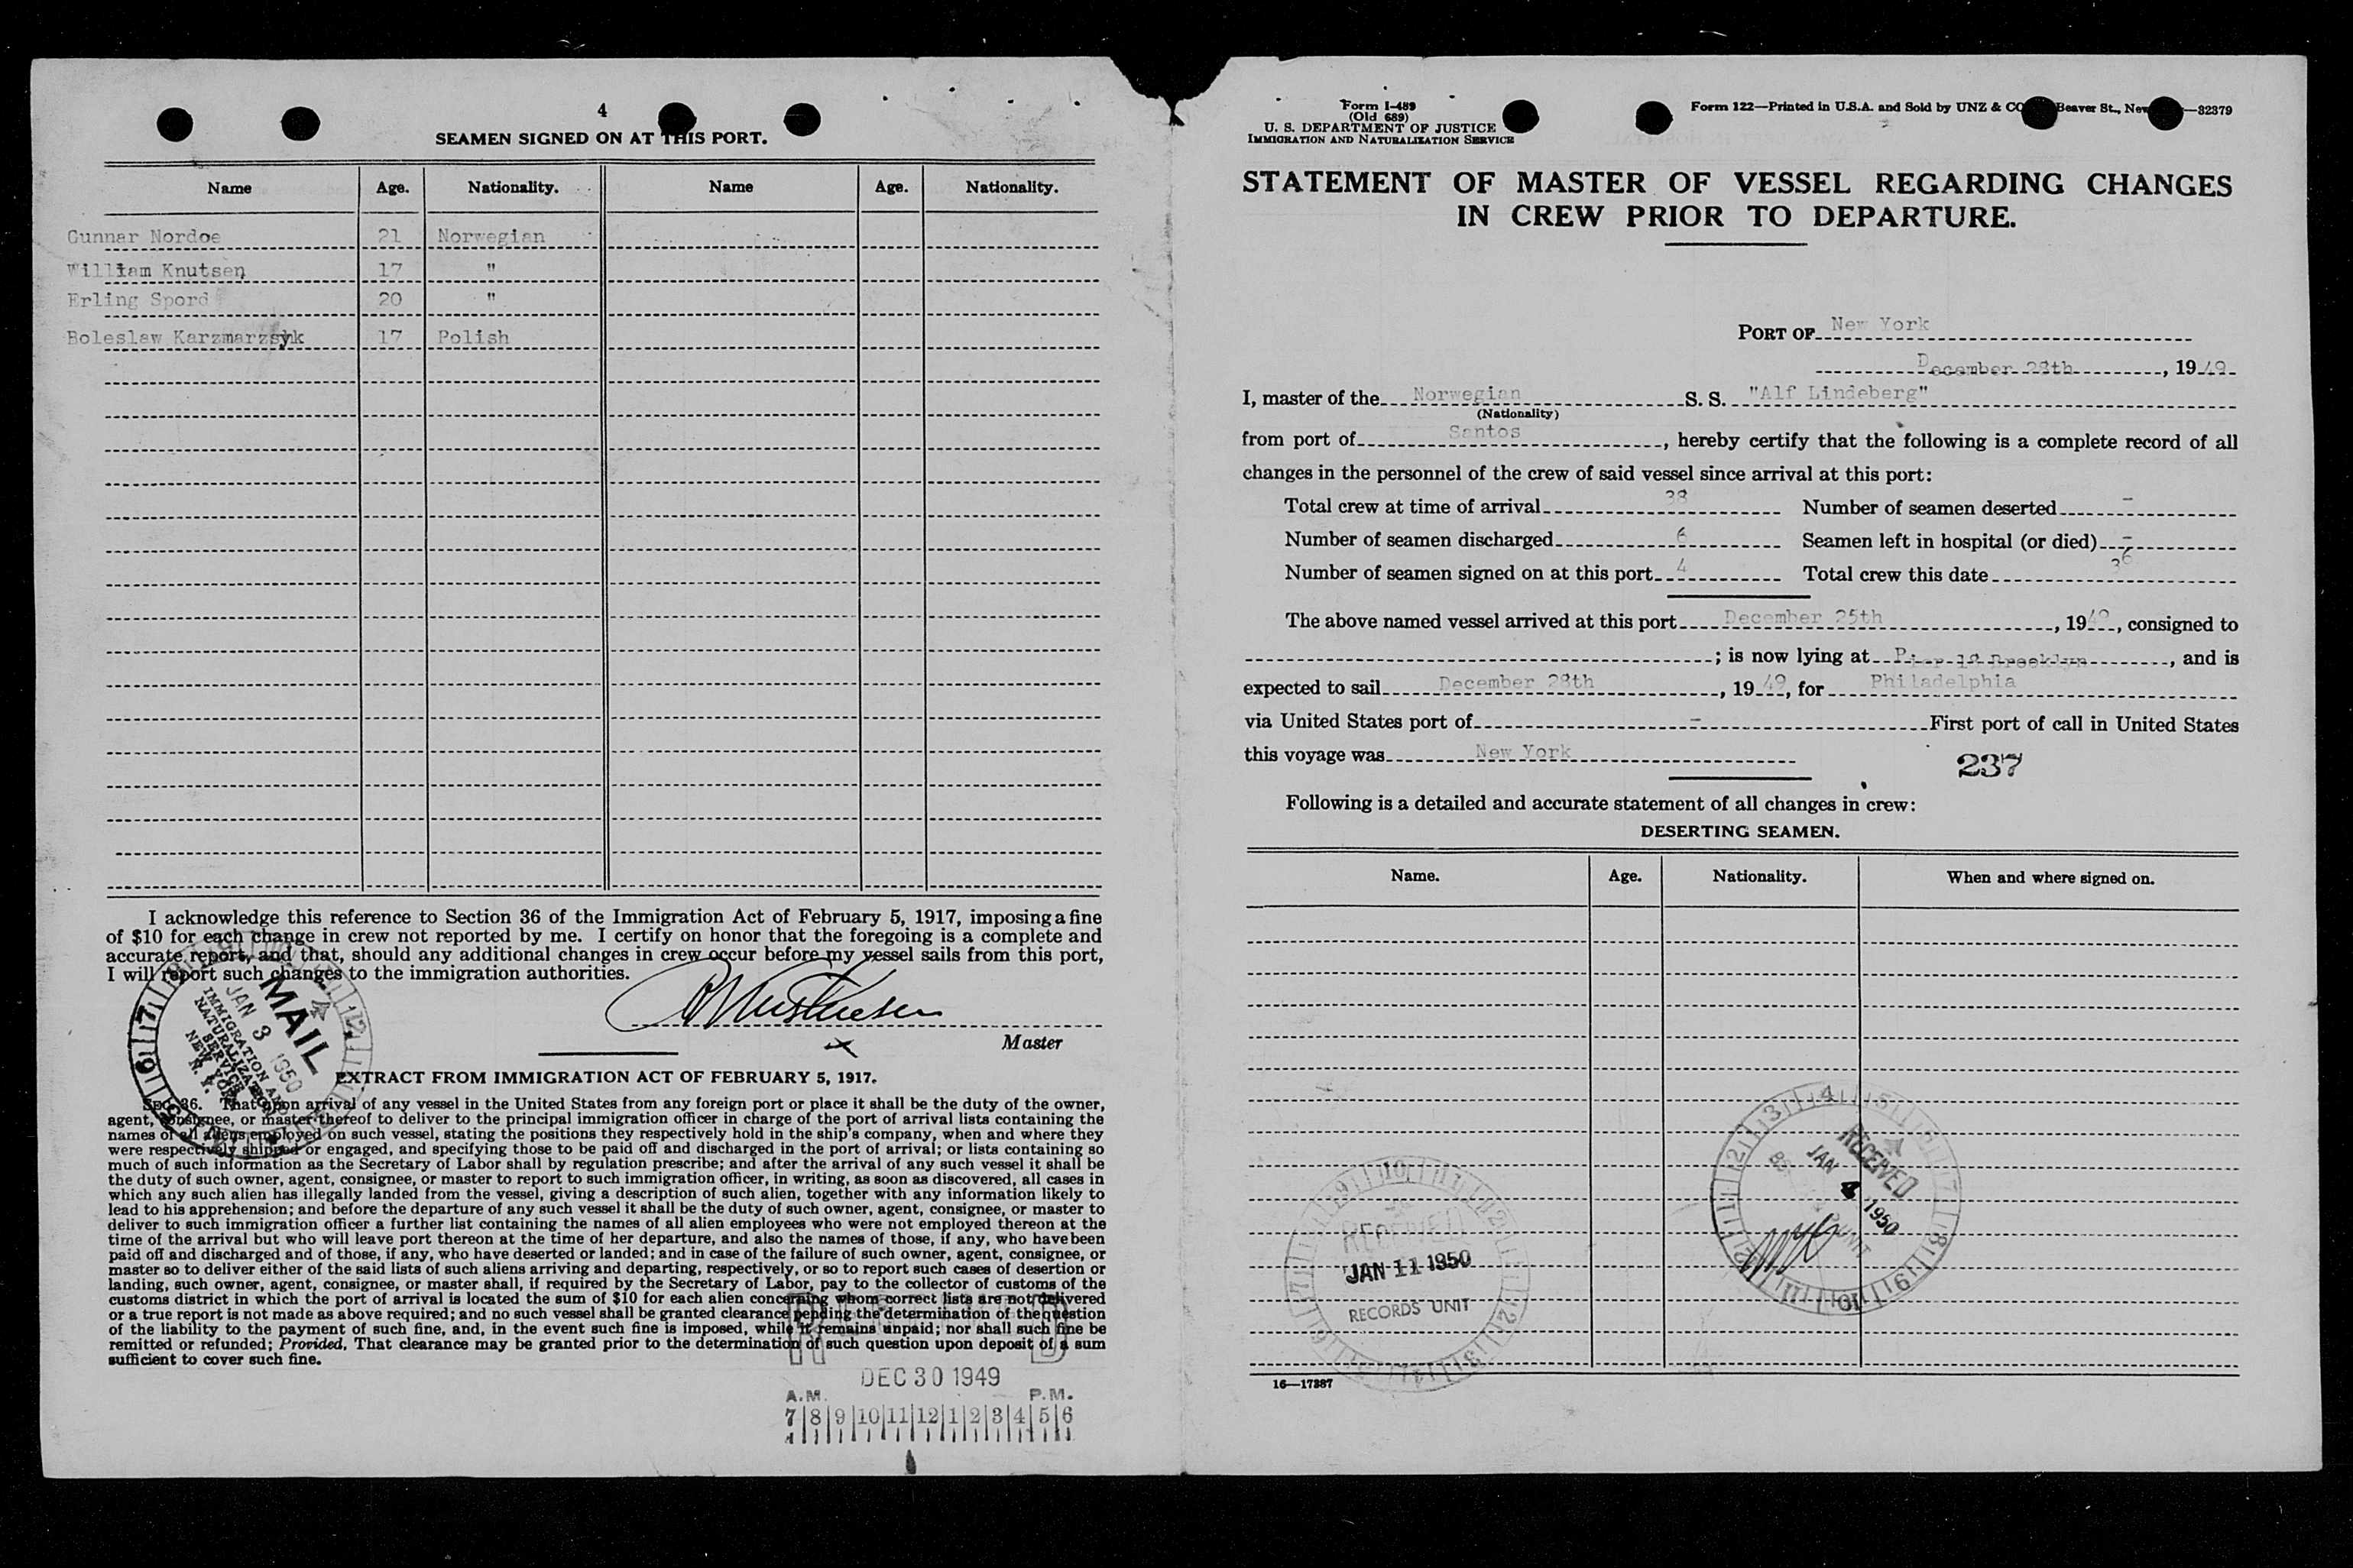 4
SEAMEN SIGNED ON AT THIS PORT.
Name Age. Nationality. Name Age. Nationality.
Gunnar Nordoe 21 Norwegian
William Knutsen 17 "
Erling Spord 20 "
Boleslaw Karzmarzsyk 17 Polish
I acknowledge this reference to Section 36 of the Immigration Act of February 5, 1917, imposing a fine
of $10 for each change in crew not reported by me. I certify on honor that the foregoing is a complete and
accurate report, and that, should any additional changes in crew occur before my vessel sails from this port,
I will report such changes to the immigration authorities.
Master
MAIL
JAN 3 1950
IMMIGRATION AND
NATURALIZATION
SERVICE
NEW YORK
N. Y.
EXTRACT FROM IMMIGRATION ACT OF FEBRUARY 5, 1917.
SEC. 36. That upon arrival of any vessel in the United States from any foreign port or place it shall be the duty of the owner,
agent, consignee, or master thereof to deliver to the principal immigration officer in charge of the port of arrival lists containing the
names of all aliens employed on such vessel, stating the positions they respectively hold in the ship's company, when and where they
were respectively shipped or engaged, and specifying those to be paid off and discharged in the port of arrival; or lists containing so
much of such information as the Secretary of Labor shall by regulation prescribe; and after the arrival of any such vessel it shall be
the duty of such owner, agent, consignee, or master to report to such immigration officer, in writing, as soon as discovered, all cases in
which any such alien has illegally landed from the vessel, giving a description of such alien, together with any information likely to
lead to his apprehension; and before the departure of any such vessel it shall be the duty of such owner, agent, consignee, or master to
deliver to such immigration officer a further list containing the names of all alien employees who were not employed thereon at the
time of the arrival but who will leave port thereon at the time of her departure, and also the names of those, if any, who have been
paid off and discharged and of those, if any, who have deserted or landed; and in case of the failure of such owner, agent, consignee, or
master so to deliver either of the said lists of such aliens arriving and departing, respectively, or so to report such cases of desertion or
landing, such owner, agent, consignee, or master shall, if required by the Secretary of Labor, pay to the collector of customs of the
customs district in which the port of arrival is located the sum of $10 for each alien concerning whom correct lists are not delivered
or a true report is not made as above required; and no such vessel shall be granted clearance pending the determination of the question
of the liability to the payment of such fine, and, in the event such fine is imposed, while it remains unpaid; nor shall such fine be
remitted or refunded; Provided, That clearance may be granted prior to the determination of such question upon deposit of a sum
sufficient to cover such fine.
DEC 30 1949
A.M. P.M.
7|8|9|10|11|12|1|2|3|4|5|6
Form I-489
(Old 689)
U. S. DEPARTMENT OF JUSTICE
IMMIGRATION AND NATURALIZATION SERVICE
Form 122—Printed in U.S.A. and Sold by UNZ & CO Beaver St., New —32379
STATEMENT OF MASTER OF VESSEL REGARDING CHANGES
IN CREW PRIOR TO DEPARTURE.
PORT OF New York
December 28th, 1949
I, master of the Norwegian S. S. "Alf Lindeberg"
(Nationality)
from port of Santos, hereby certify that the following is a complete record of all
changes in the personnel of the crew of said vessel since arrival at this port:
Total crew at time of arrival 38 Number of seamen deserted -
Number of seamen discharged 6 Seamen left in hospital (or died) -
Number of seamen signed on at this port 4 Total crew this date 36
The above named vessel arrived at this port December 25th, 1949, consigned to
; is now lying at Pier 18 Brooklyn, and is
expected to sail December 28th, 1949, for Philadelphia
via United States port of - First port of call in United States
this voyage was New York
237
Following is a detailed and accurate statement of all changes in crew:
DESERTING SEAMEN.
Name. Age. Nationality. When and where signed on.
RECEIVED
JAN 4 1950
UNIT
RECEIVED
JAN 11 1950
RECORDS UNIT
16—17387